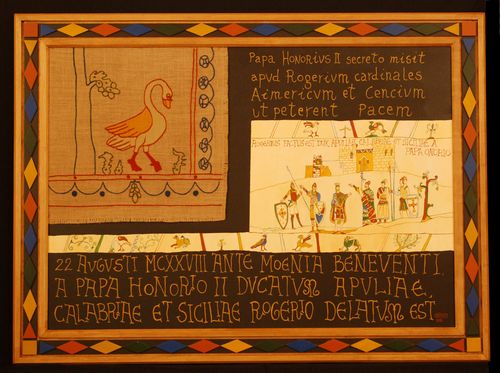 PAPA HONORIUS II secreto misit
apud Rogerium cardinales
Aimericum et Cencium
ut peterent Pacem
ROGERIUS FACTUS EST DUX APULIAE, CALABRIAE ET SICILIAE A
PAPA ONORIO
22 AUGUSTI MCXXVIII ANTE MOENIA BENEVENTI,
A PAPA HONORIO II DUCATUM APULIAE,
CALABRIAE ET SICILIAE ROGERIO DELATUM EST